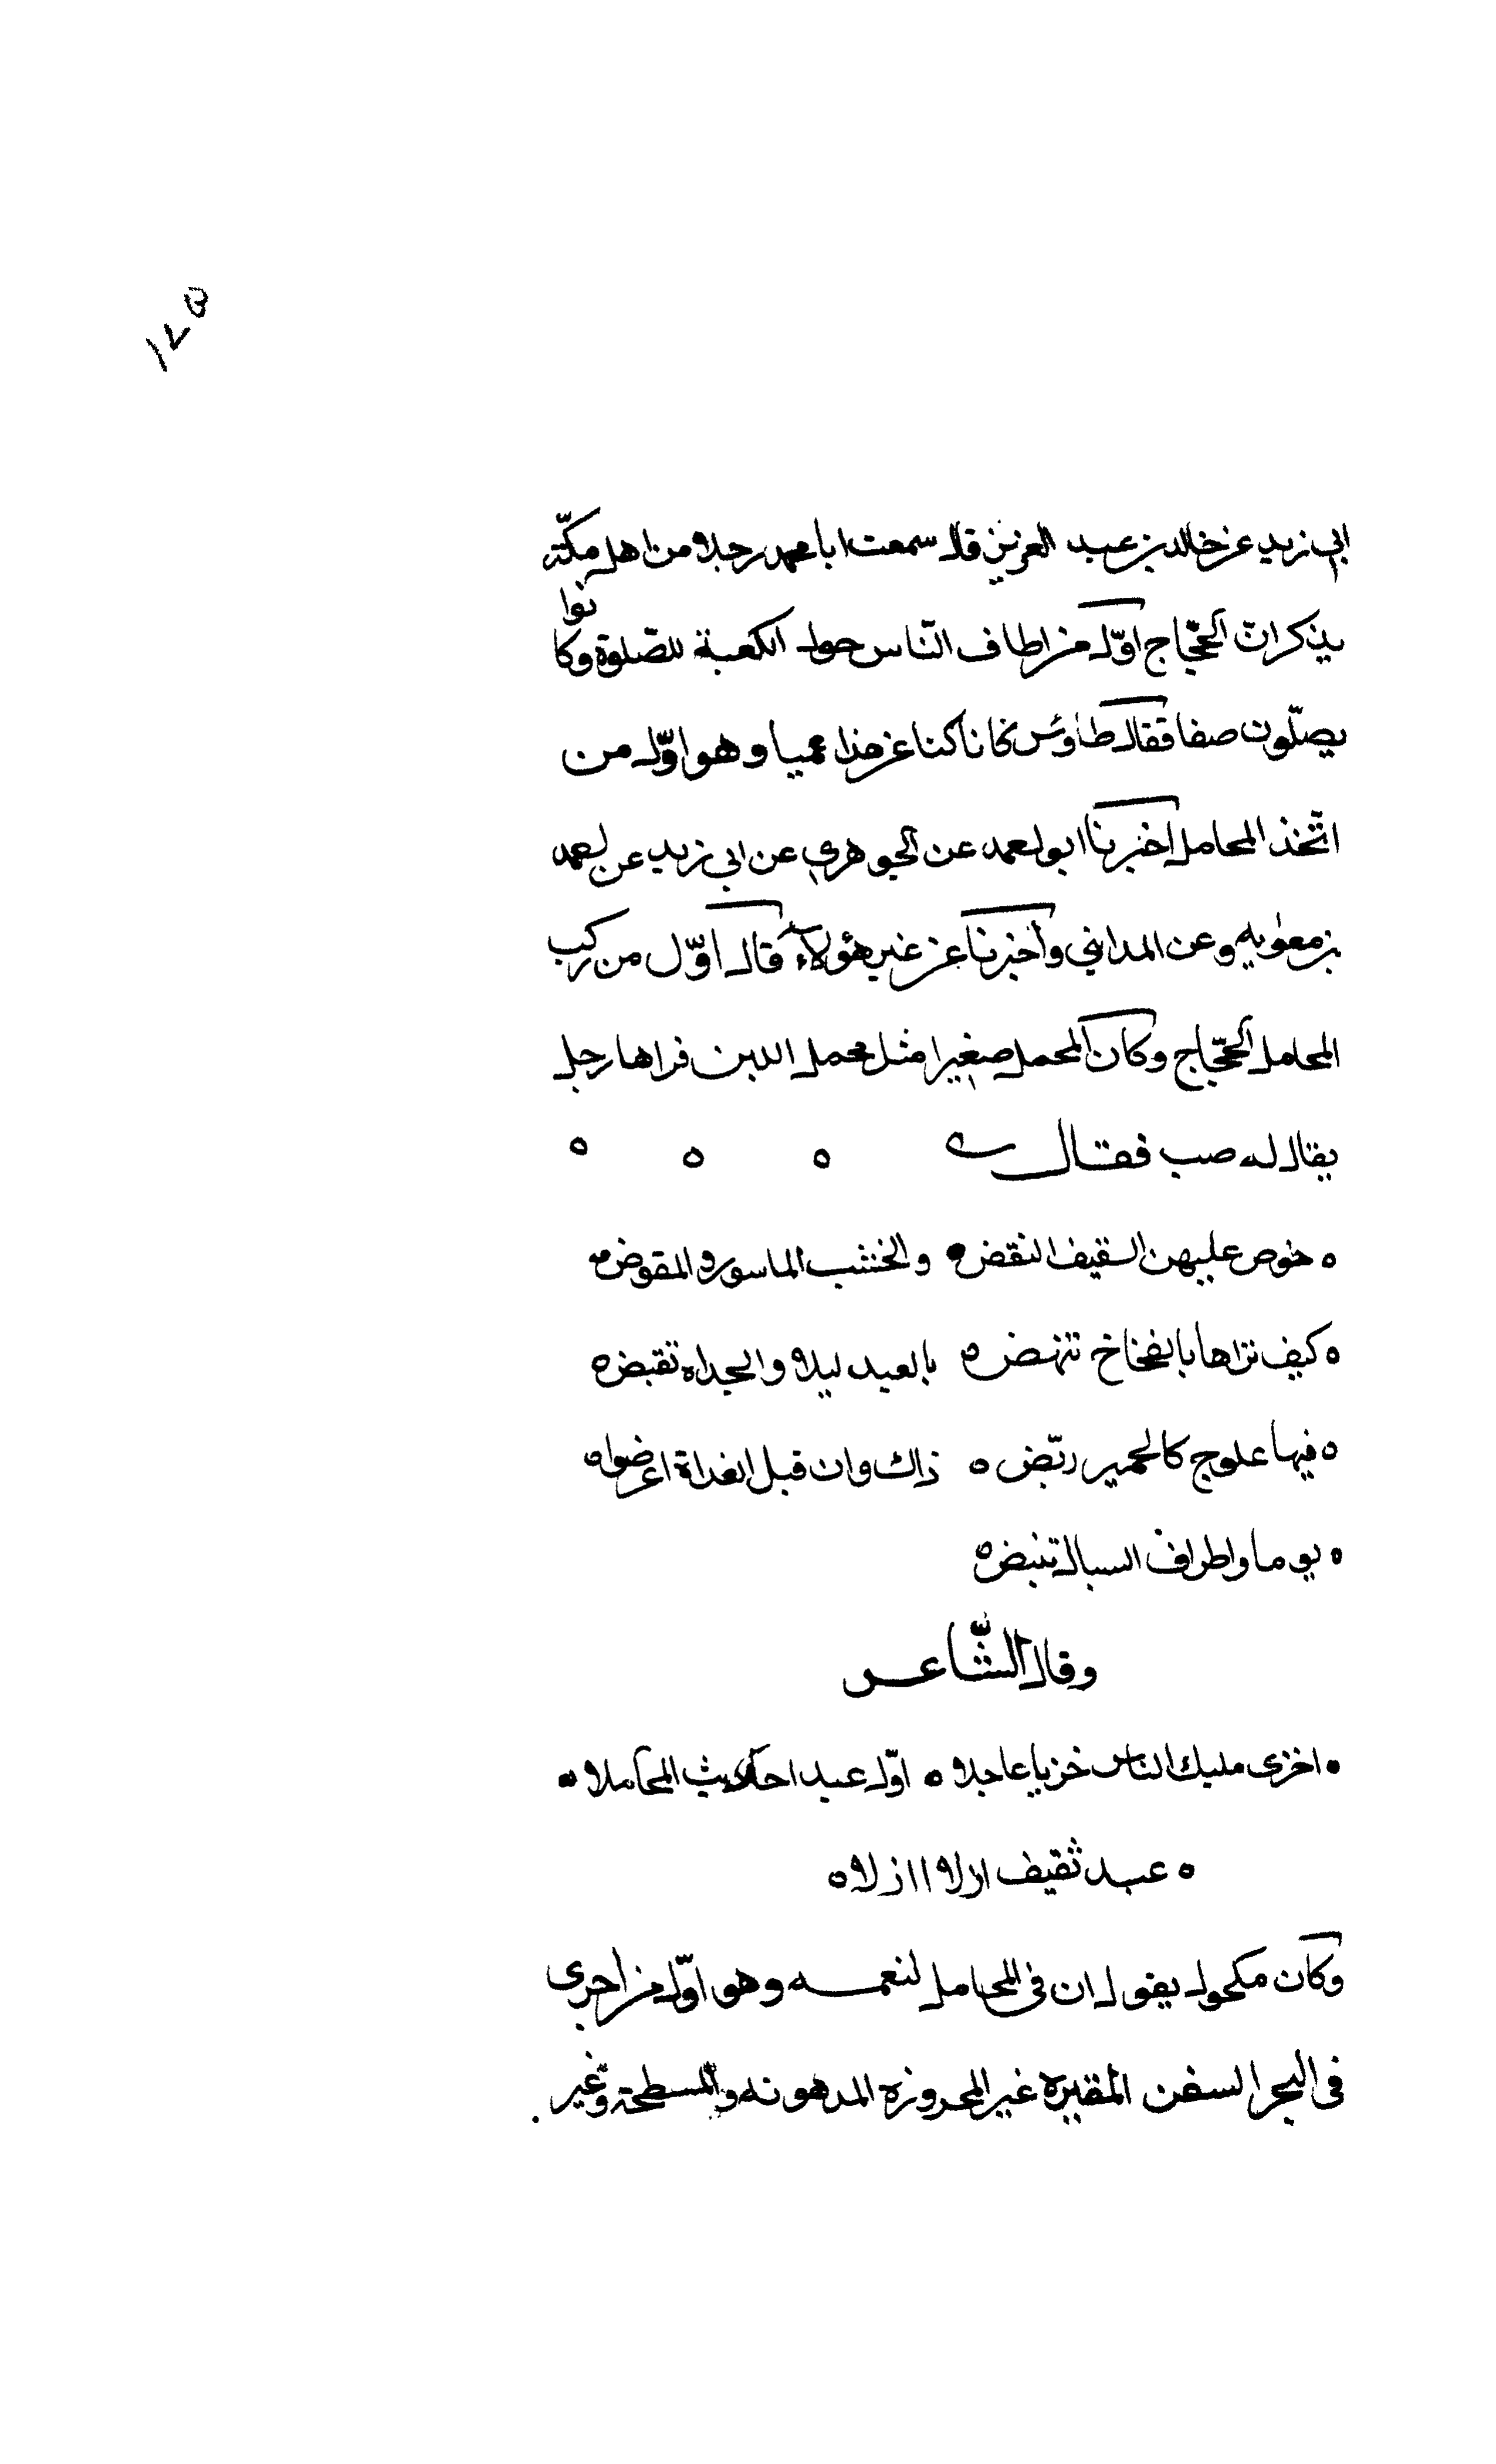 ١٧٥
ابي زيد عن خالد بن عبد العزيز قال سمعت ابا محمد رجلا من اهل مكّة
يذكر انّ الحجّاج اوّل من اطاف النّاس حول الكعبة للصّلوة وكانوا
يصلّون صفا فقال طاوس كانا كنا عن هذا عميا وهو اوّل من
اتّخذ المحامل اخبرنا ابو احمد عن الجوهري عن ابي زيد عن احمد
بن معويه وعن المدايني واخبرنا عن غير هؤلاء قال اوّل من ركب
المحامل الحجّاج وكان المحمل صغيرا مثل محمل اللبن فراها رجل
يقال له صب فقال
خوص عليهن السقيف النقض والخشب الماسور والمقوض
كيف تراها بالفخاخ تنهض بالعبد ليلا والحداه تقبض
فيها علوج كالحمير ربّض ذاك وان قبل الغداة اعرضوا
يوما واطراف السبال تنبض
وقال الشّاعر
اخزى مليك الناس خزيا عاجلا اوّل عبد احدث المحاملا
عبد ثقيف ازلا اازلا
وكان مكحول يقول ان في المحامل لنعمه وهو اوّل من اجرى
في البحر السفن المقيره غير المحروزه المدهونه والمسطحة وغير